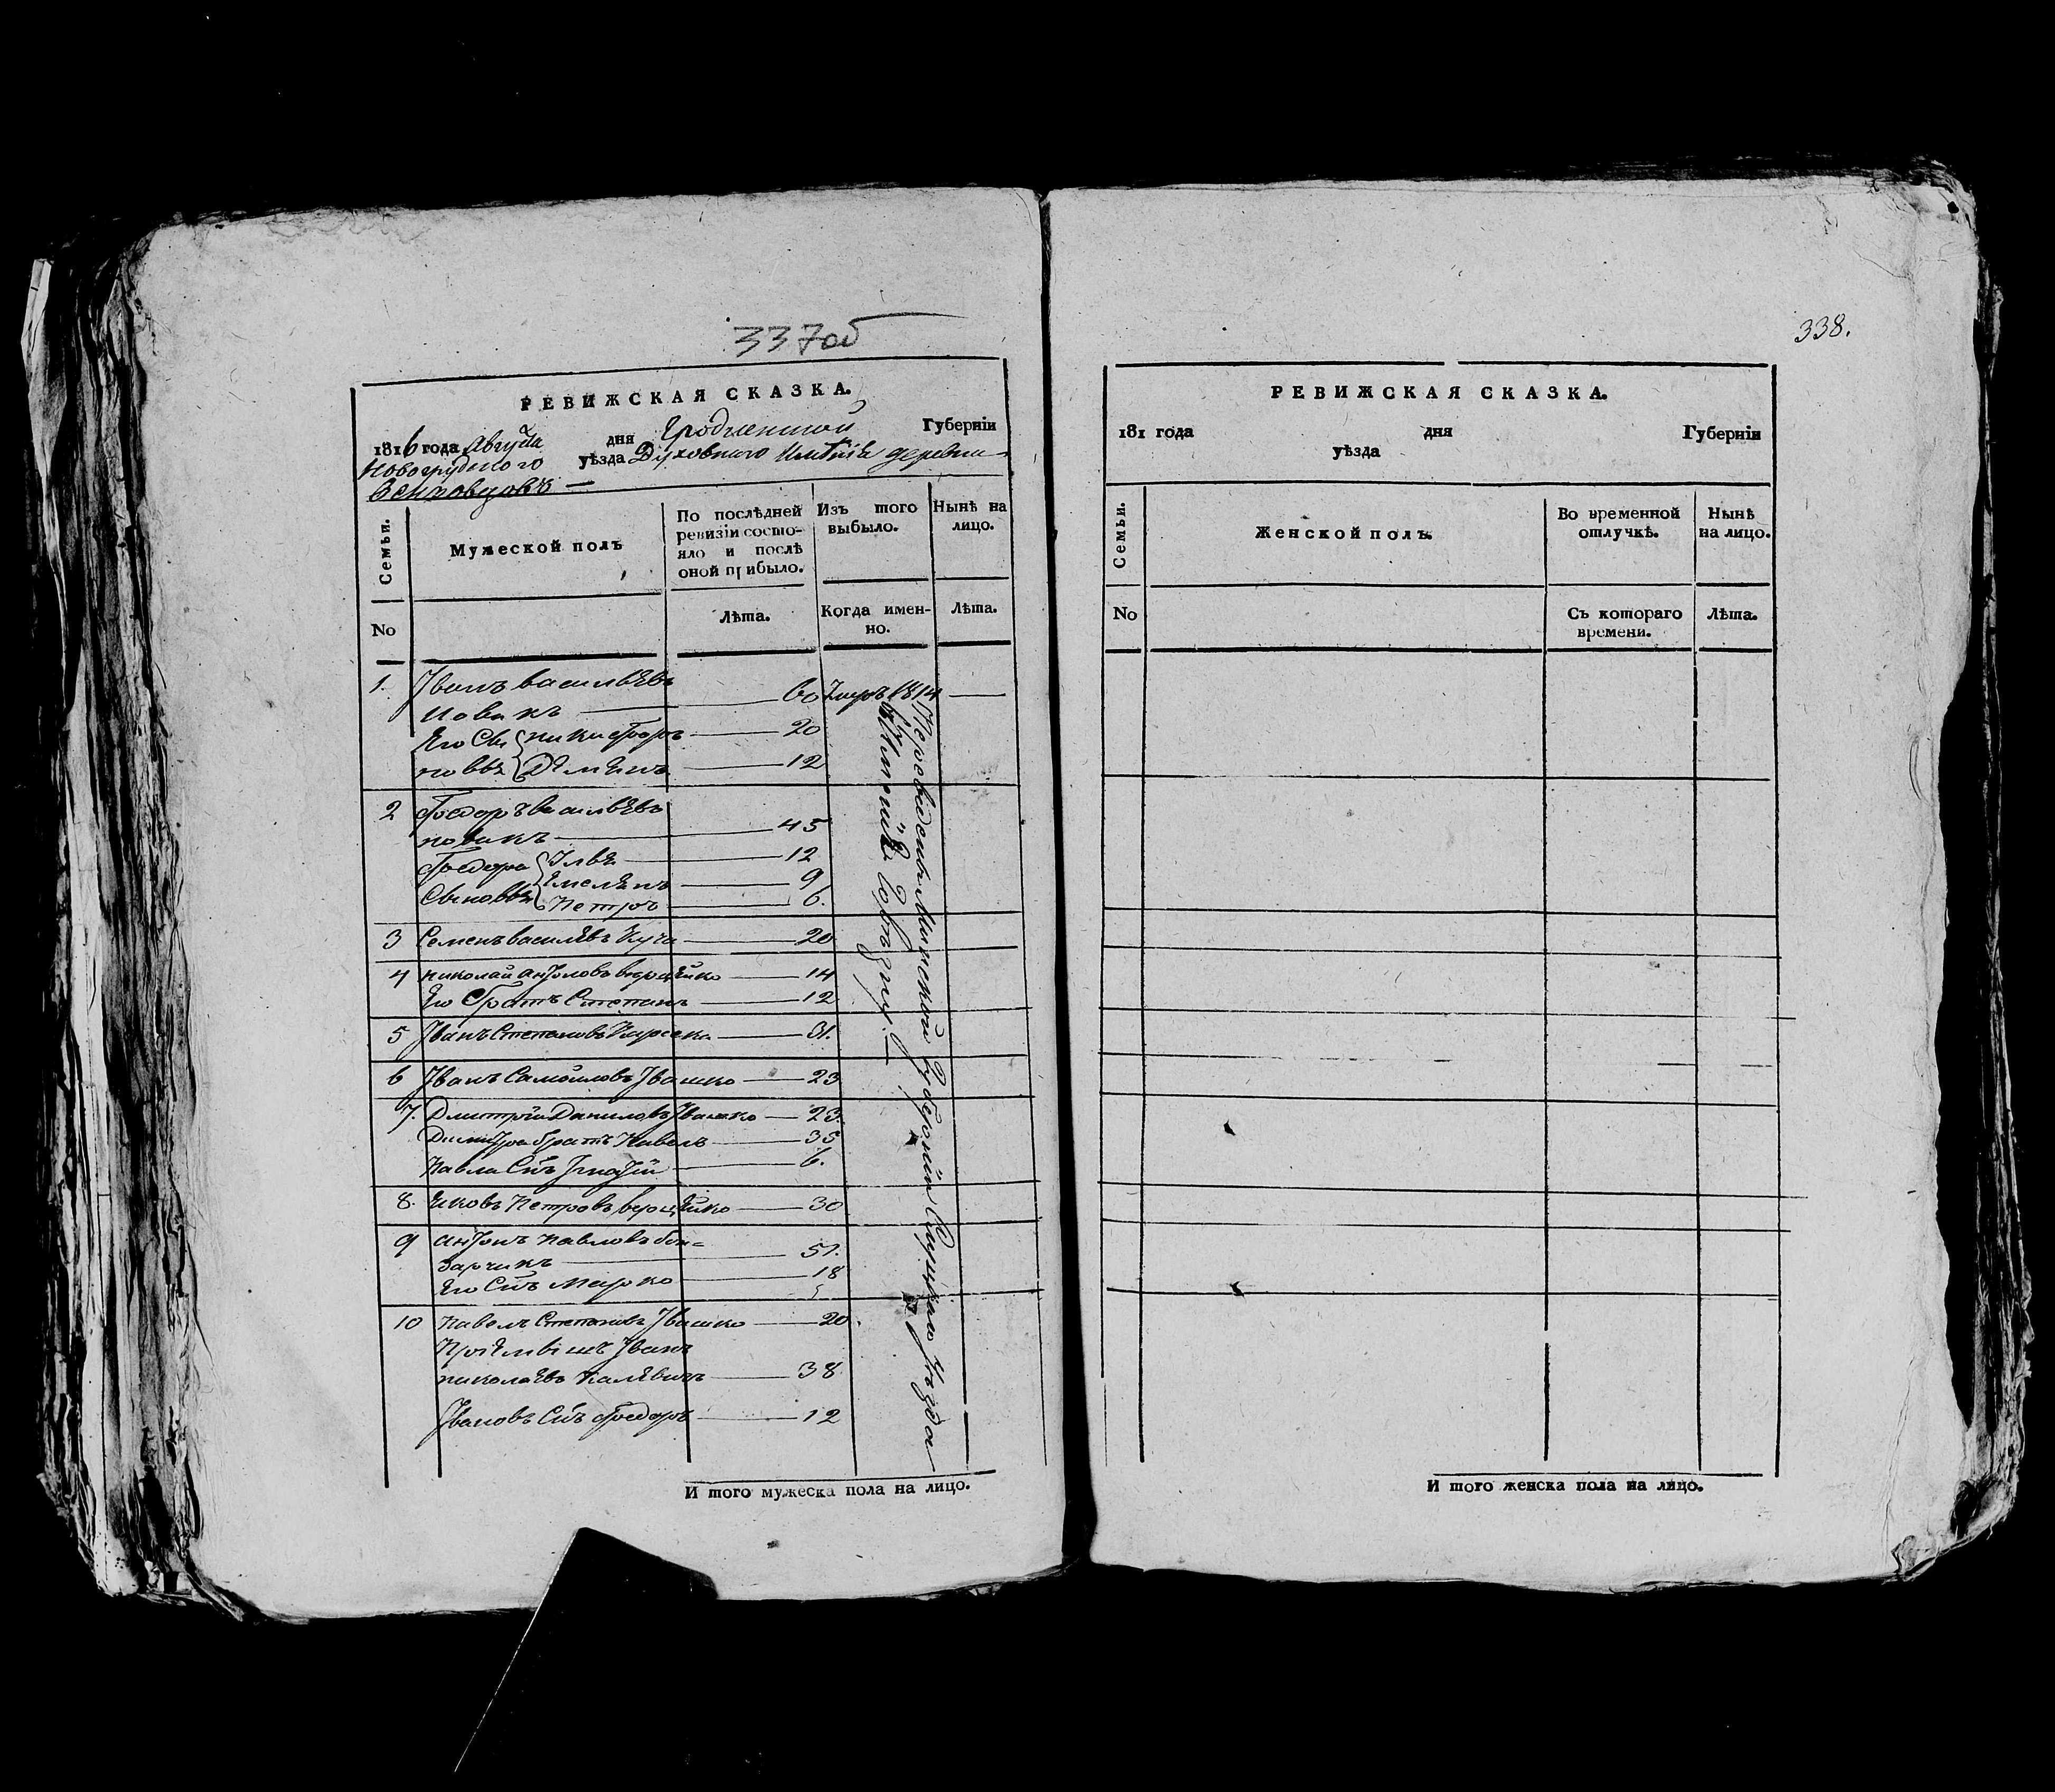 337об
РЕВИЖСКАЯ СКАЗКА.
1816 года Августа дня Гродненской Губерніи
Новогрудского уѣзда Духовного Имѣнія деревни
Семьи.
Мужеской полъ
По послѣдней ревизіи состояло и послѣ оной прибыло.
Изъ того выбыло.
Нынѣ на лицо.
No
Лѣта.
Когда именно.
Лѣта.
1. Іванъ васильевъ
Новикъ 60 Умръ 1814
Его Сы никифоръ 20
новья Демьянъ 12
2 Федоръ васильевъ
новикъ 45
Федора Илья 12
Сыновья Емельянъ 9
Петръ 6.
3 Семенъ васильевъ Куча 20
4 николай антоновъ 14
Его братъ Степанъ 12
5 Іванъ Степановъ 31.
6 Іванъ Самойловъ Івашко 23
7. Дмитрій Даниловъ Івашко 23.
Дмитра братъ Павелъ 35
Павла Снъ Ігнатій 6.
8. Яковъ Петровъ 30
9 антонъ Павловъ бон=
дарчикъ 51.
Его Снъ Марко 18
10 Павелъ Степановъ Івашко 20.
Іванъ
николаевъ 38
Івановъ Снъ Федоръ 12
Переведены Минской Губерніи Слуцкаго уѣзда
И того мужеска пола на лицо.
338.
РЕВИЖСКАЯ СКАЗКА.
181 года дня Губерніи
уѣзда
Семьи.
Женской полъ.
Во временной отлучкѣ.
Нынѣ на лицо.
No
Съ котораго времени.
Лѣта.
И того женска пола на лицо.